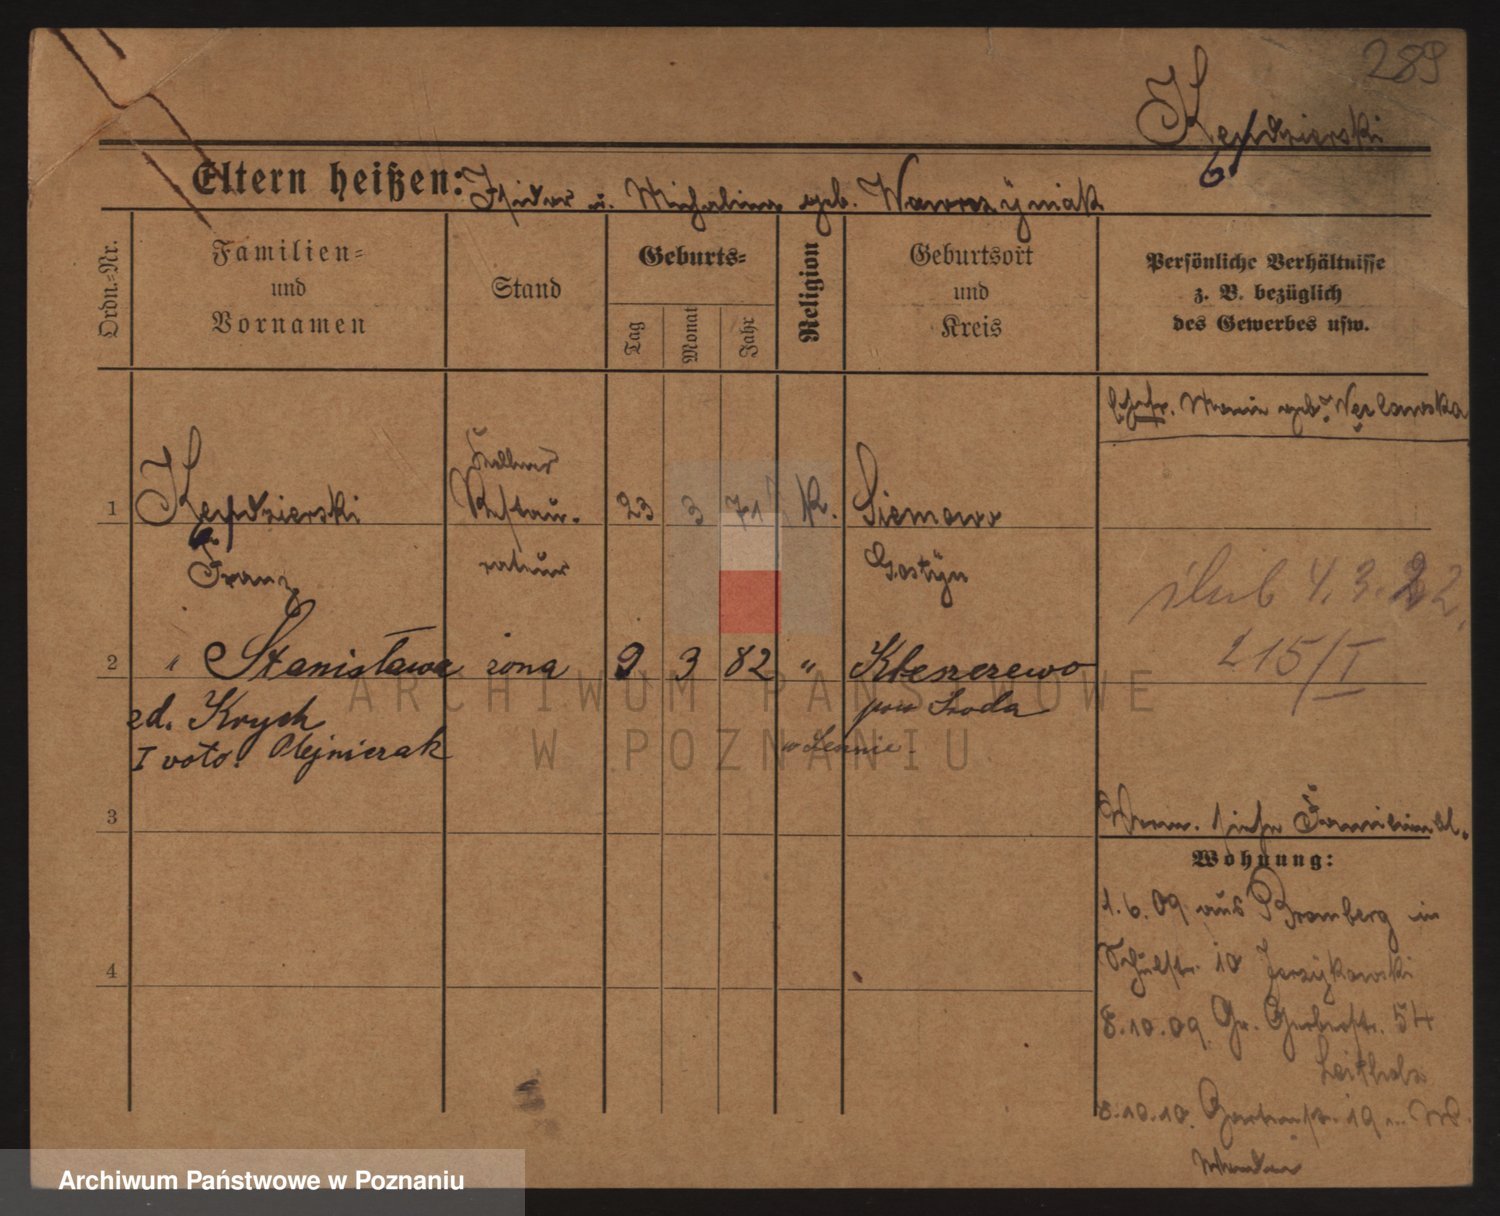 289
Kendzierski
Eltern heißen: Isidor u. Michalina geb. Wawrzyniak
Ordn.-Nr.
Familien=
und
Vornamen
Stand
Geburts=
Tag
Monat
Jahr
Religion
Geburtsort
und
Kreis
Persönliche Verhältnisse
z. B. bezüglich
des Gewerbes usw.
Ehefr. Marie geb.
1
Kendzierski
Franz
Kellner
Restau-
rateur
23 3 71 K.
Siemowo
Gostyn
ślub 4.3.22.
215/I
2
" Stanisława żona 9 3 82 " Kleszczewo
pow Środa
zd. Krych
I voto. Olejniczak
3
siehe Familienbl.
4
Wohnung:
1.6.09 aus Bromberg in
Schulstr. 10 Jerzykowski
8.10.09 Gr. Gerberstr. 54
8.10.10. 19
ARCHIWUM PAŃSTWOWE
W POZNANIU
Archiwum Państwowe w Poznaniu